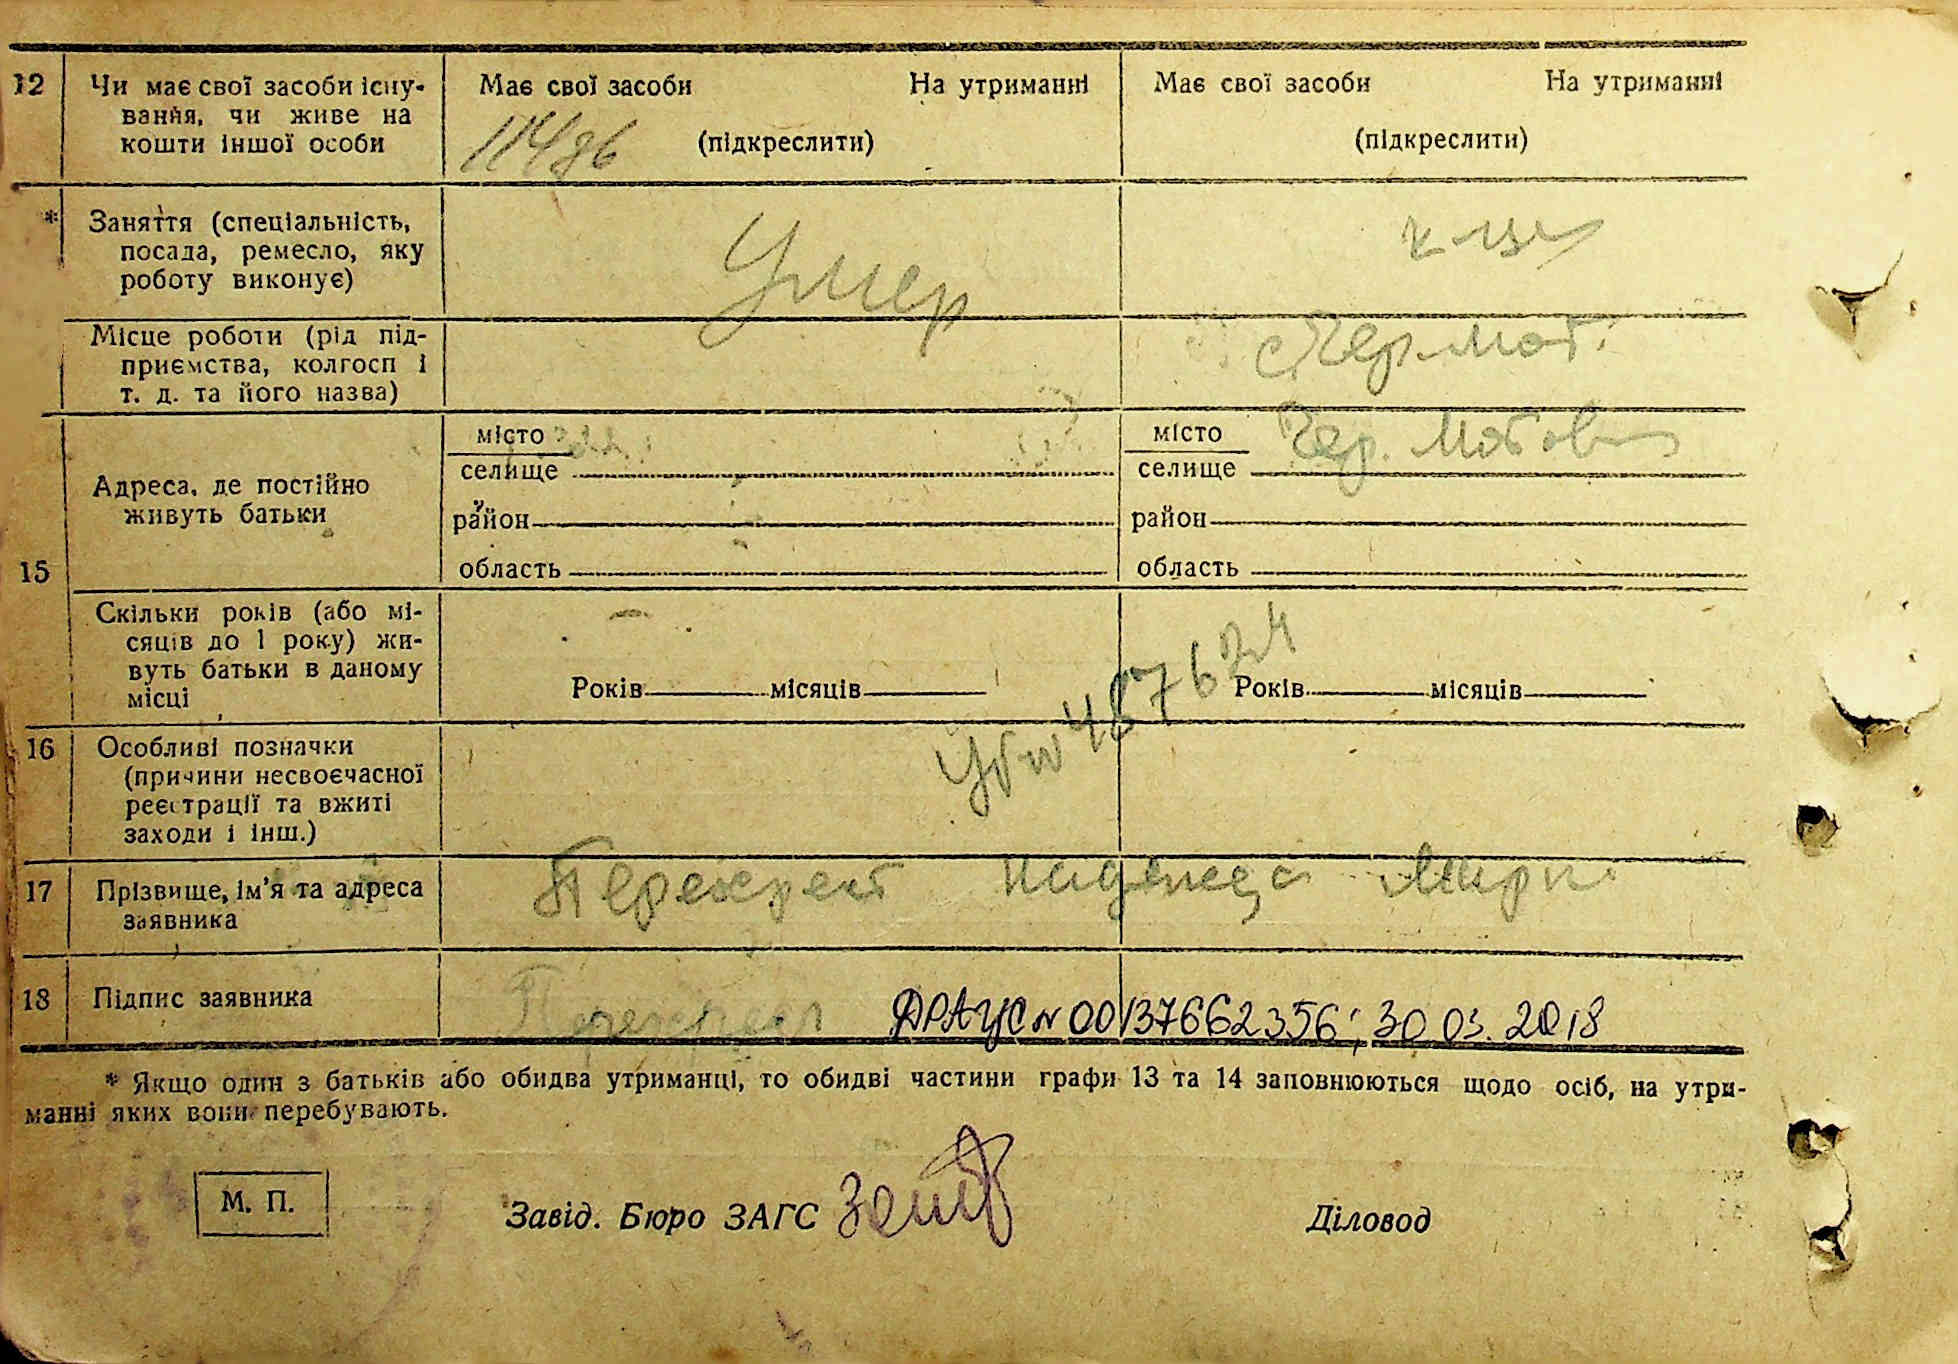 12
Чи має свої засоби існу-
вання, чи живе на
кошти іншої особи
Має свої засоби На утриманні
(підкреслити)
Має свої засоби На утриманні
(підкреслити)
*
Заняття (спеціальність,
посада, ремесло, яку
роботу виконує)
Умер
Місце роботи (рід під-
приємства, колгосп і
т. д. та його назва)
15
Адреса, де постійно
живуть батьки
місто
селище
район
область
місто
селище
район
область
Скільки років (або мі-
сяців до 1 року) жи-
вуть батьки в даному
місці
Років місяців
Років місяців
16
Особливі позначки
(причини несвоєчасної
реєстрації та вжиті
заходи і інш.)
17
Прізвище, ім'я та адреса
заявника
Перехрест
18
Підпис заявника
Перехрест
ДРАЦС № 00137662356; 30.03.2018
* Якщо один з батьків або обидва утриманці, то обидві частини графи 13 та 14 заповнюються щодо осіб, на утри-
манні яких вони перебувають.
М. П.
Завід. Бюро ЗАГС
Діловод